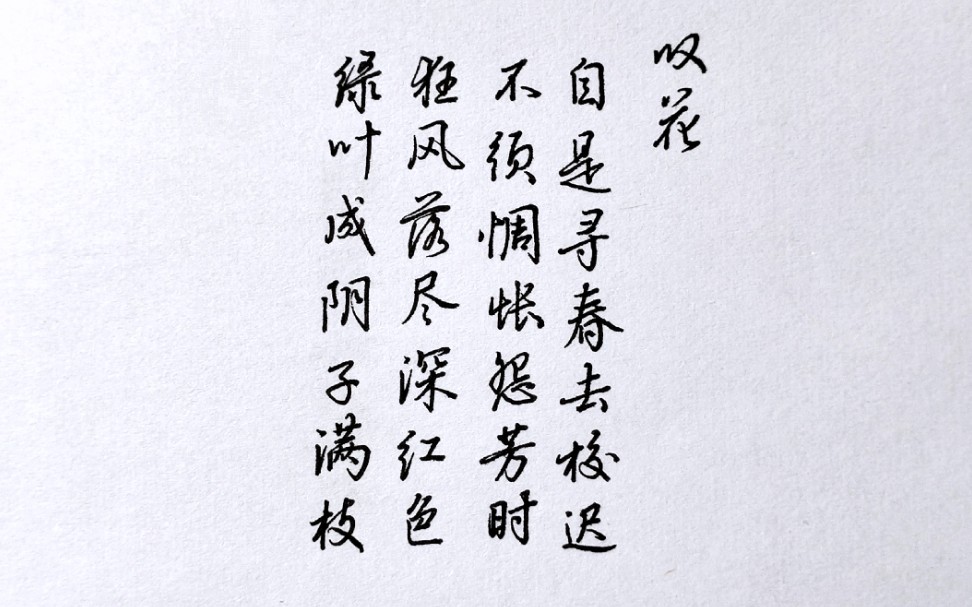 叹花
自是寻春去校迟
不须惆怅怨芳时
狂风落尽深红色
绿叶成阴子满枝